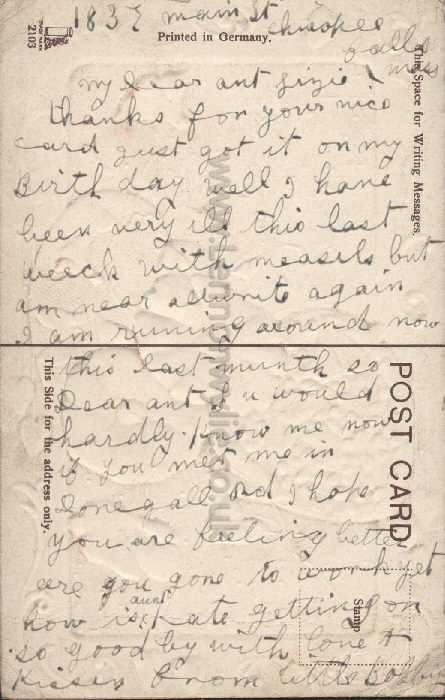 1837 main St
chicopee
falls
mas
Printed in Germany.
2103
This Space for Writing Messages.
my Dear ant Lizie
thanks for your nice
card just got it on my
Birth day well I have
been very ill this last
weeck with measels but
am near allwrite again
I am runing around now
this last munth so
Dear ant u would
hardly know me now
if you met me in
Donegall and I hope
you are feeling better
are you gone to work yet
how is aunt Kate getting on
so good by with love +
Kisses from little Bobby
POST CARD
This Side for the address only.
Stamp